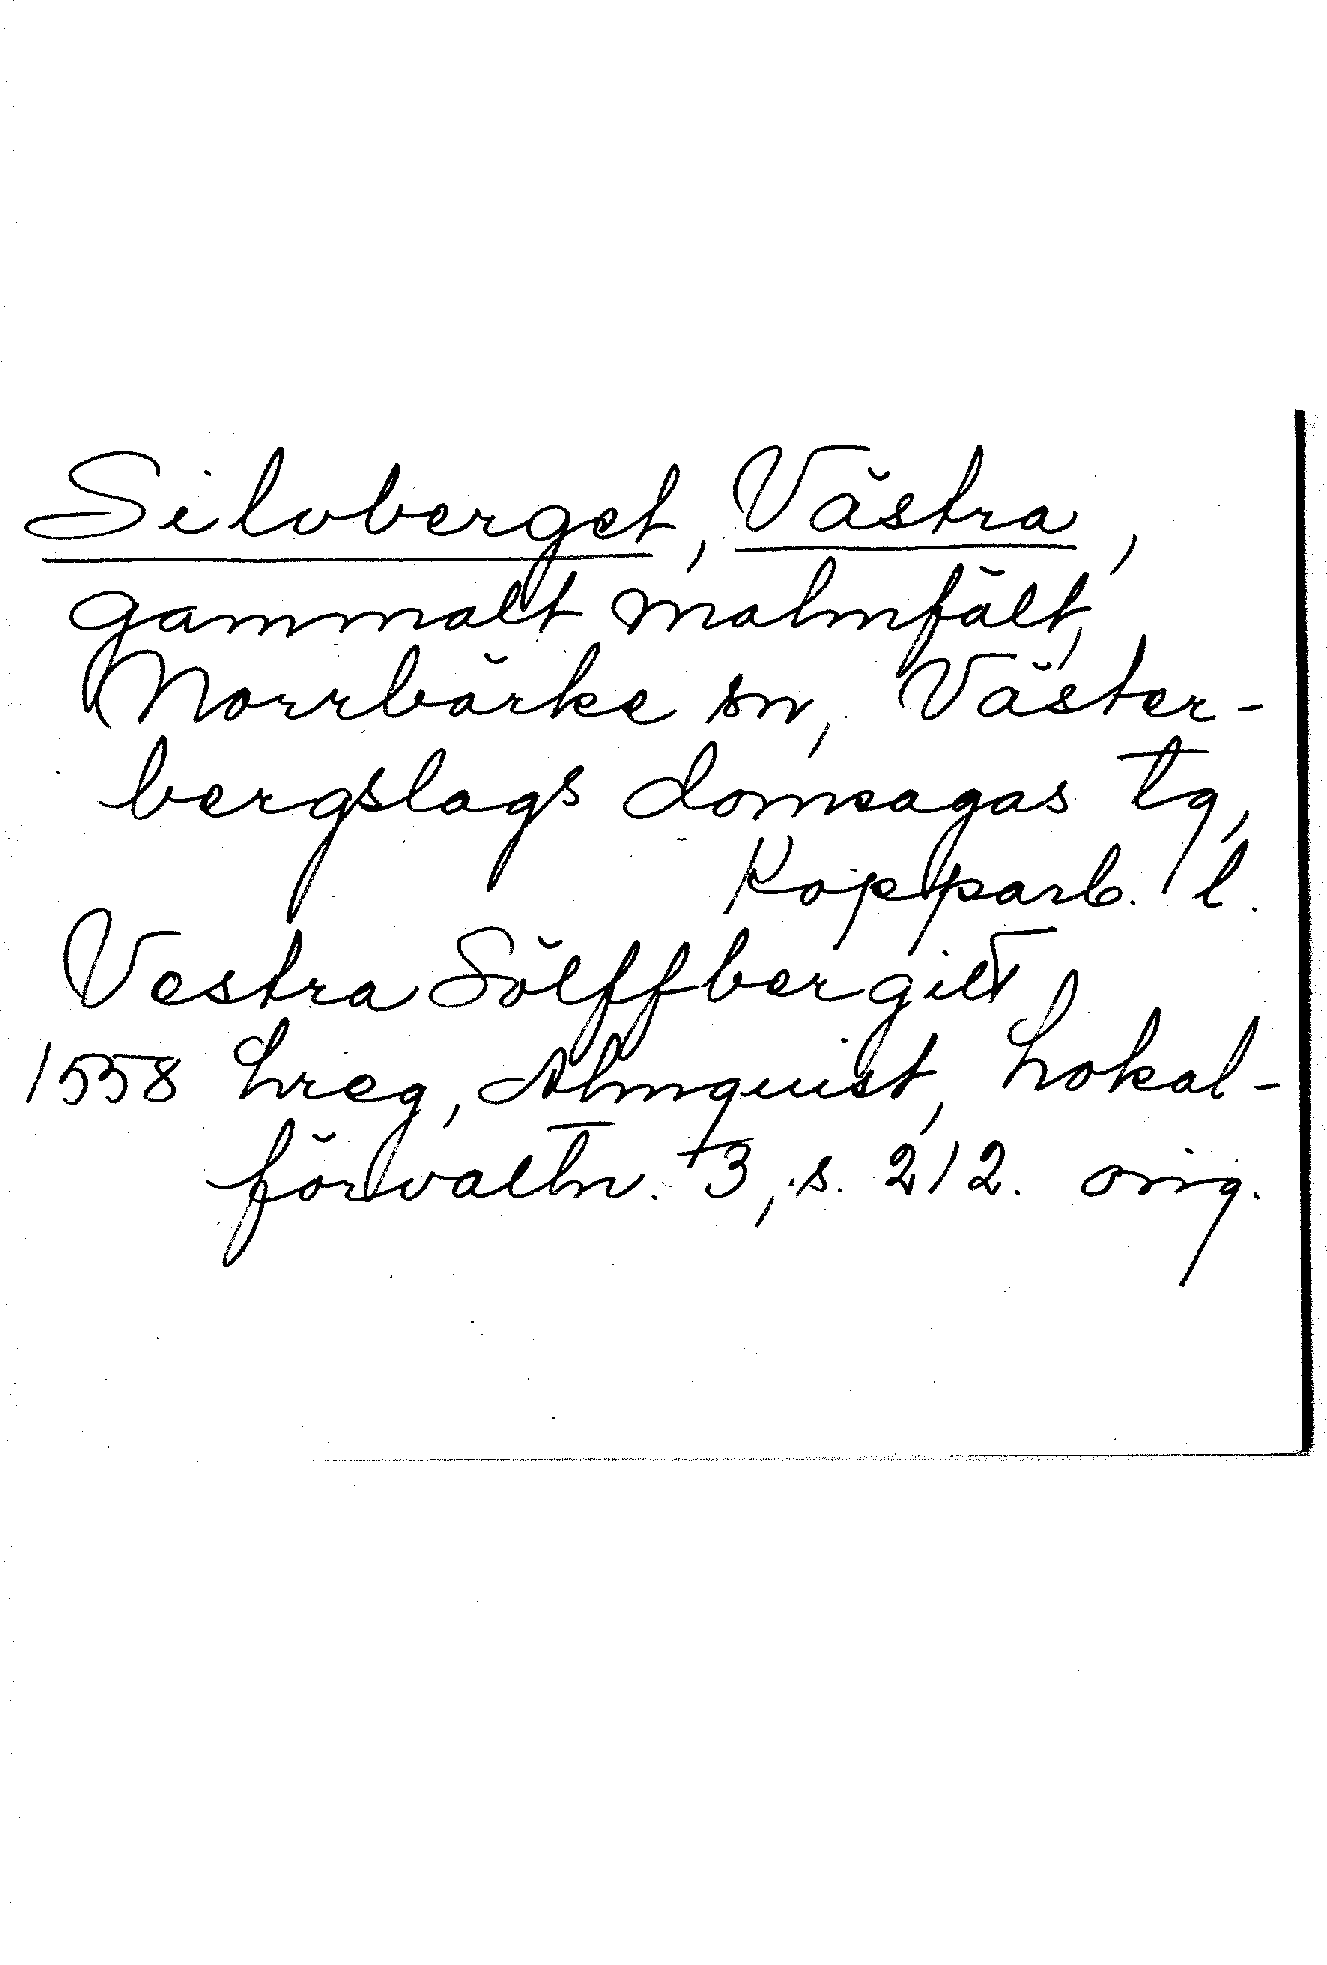 Silvberget, Västra,
gammalt malmfält,
Norrbärke sn, Väster-
bergslags domsagas tg,
Kopparb. l.
Vestra Sölffbergitt
1558 Lreg, Almquist, Lokal-
förvaltn. 3, s. 212. orig.